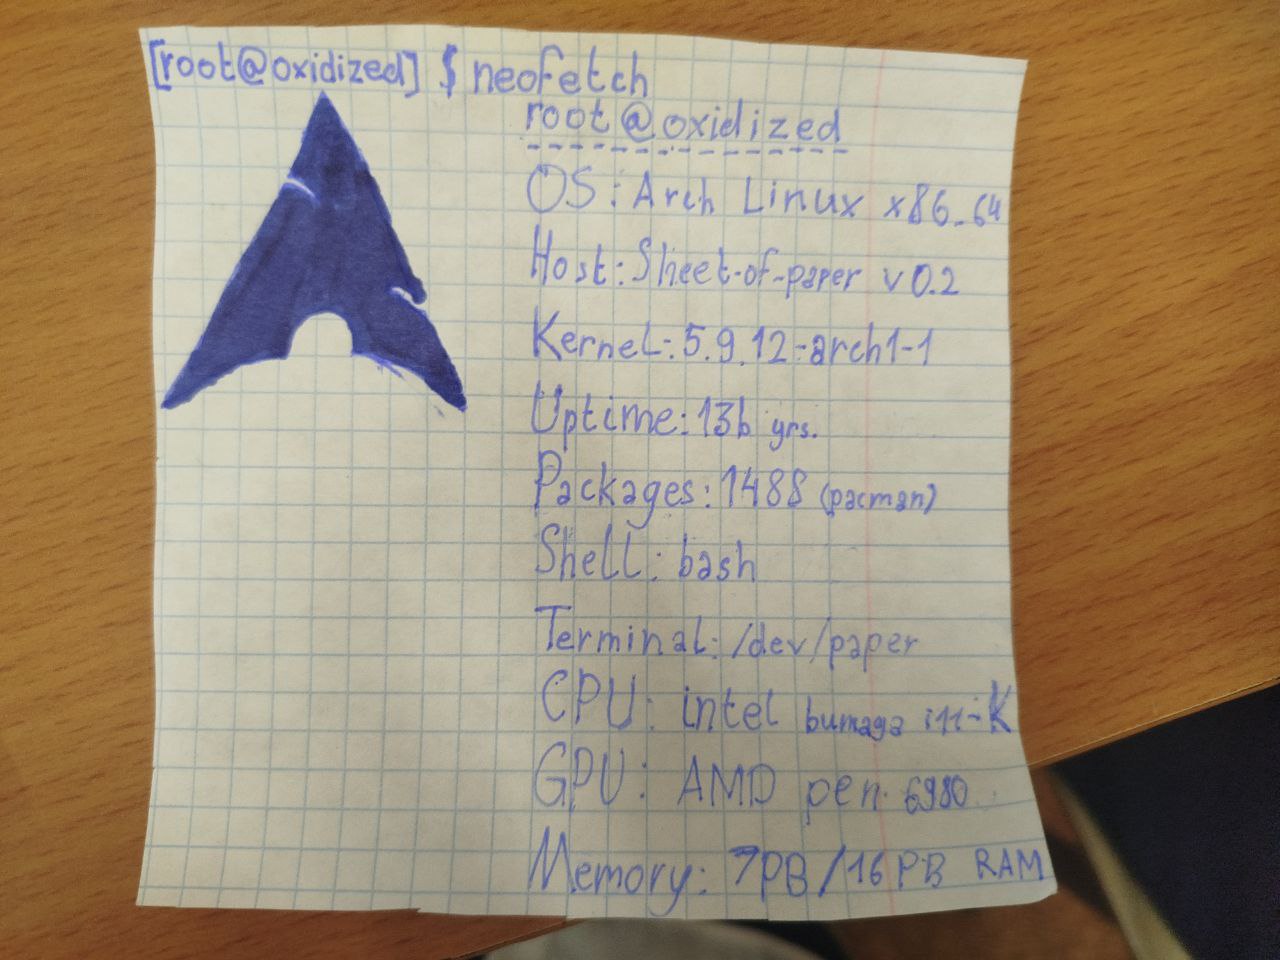 [root@oxidized] $ neofetch
root@oxidized
----------------
OS: Arch Linux x86_64
Host: Sheet-of-paper v0.2
Kernel: 5.9.12-arch1-1
Uptime: 13b yrs.
Packages: 1488 (pacman)
Shell: bash
Terminal: /dev/paper
CPU: intel bumaga i11-K
GPU: AMD pen 6980
Memory: 7PB/16PB RAM